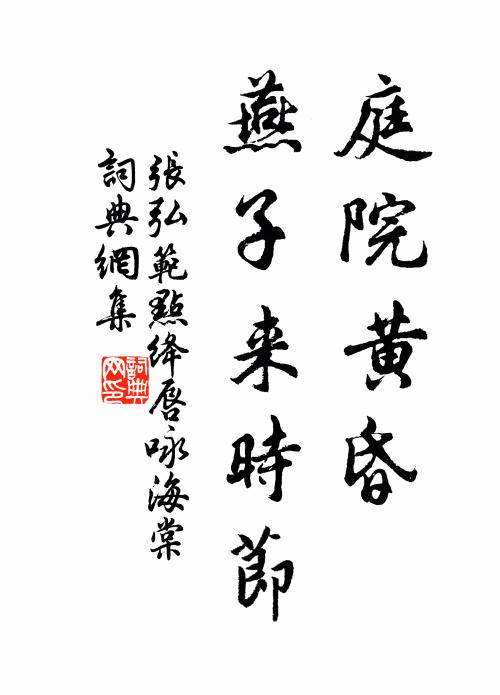 庭院黄昏
燕子来時節
張弘範點绛唇咏海棠
詞典網集
詞典網印